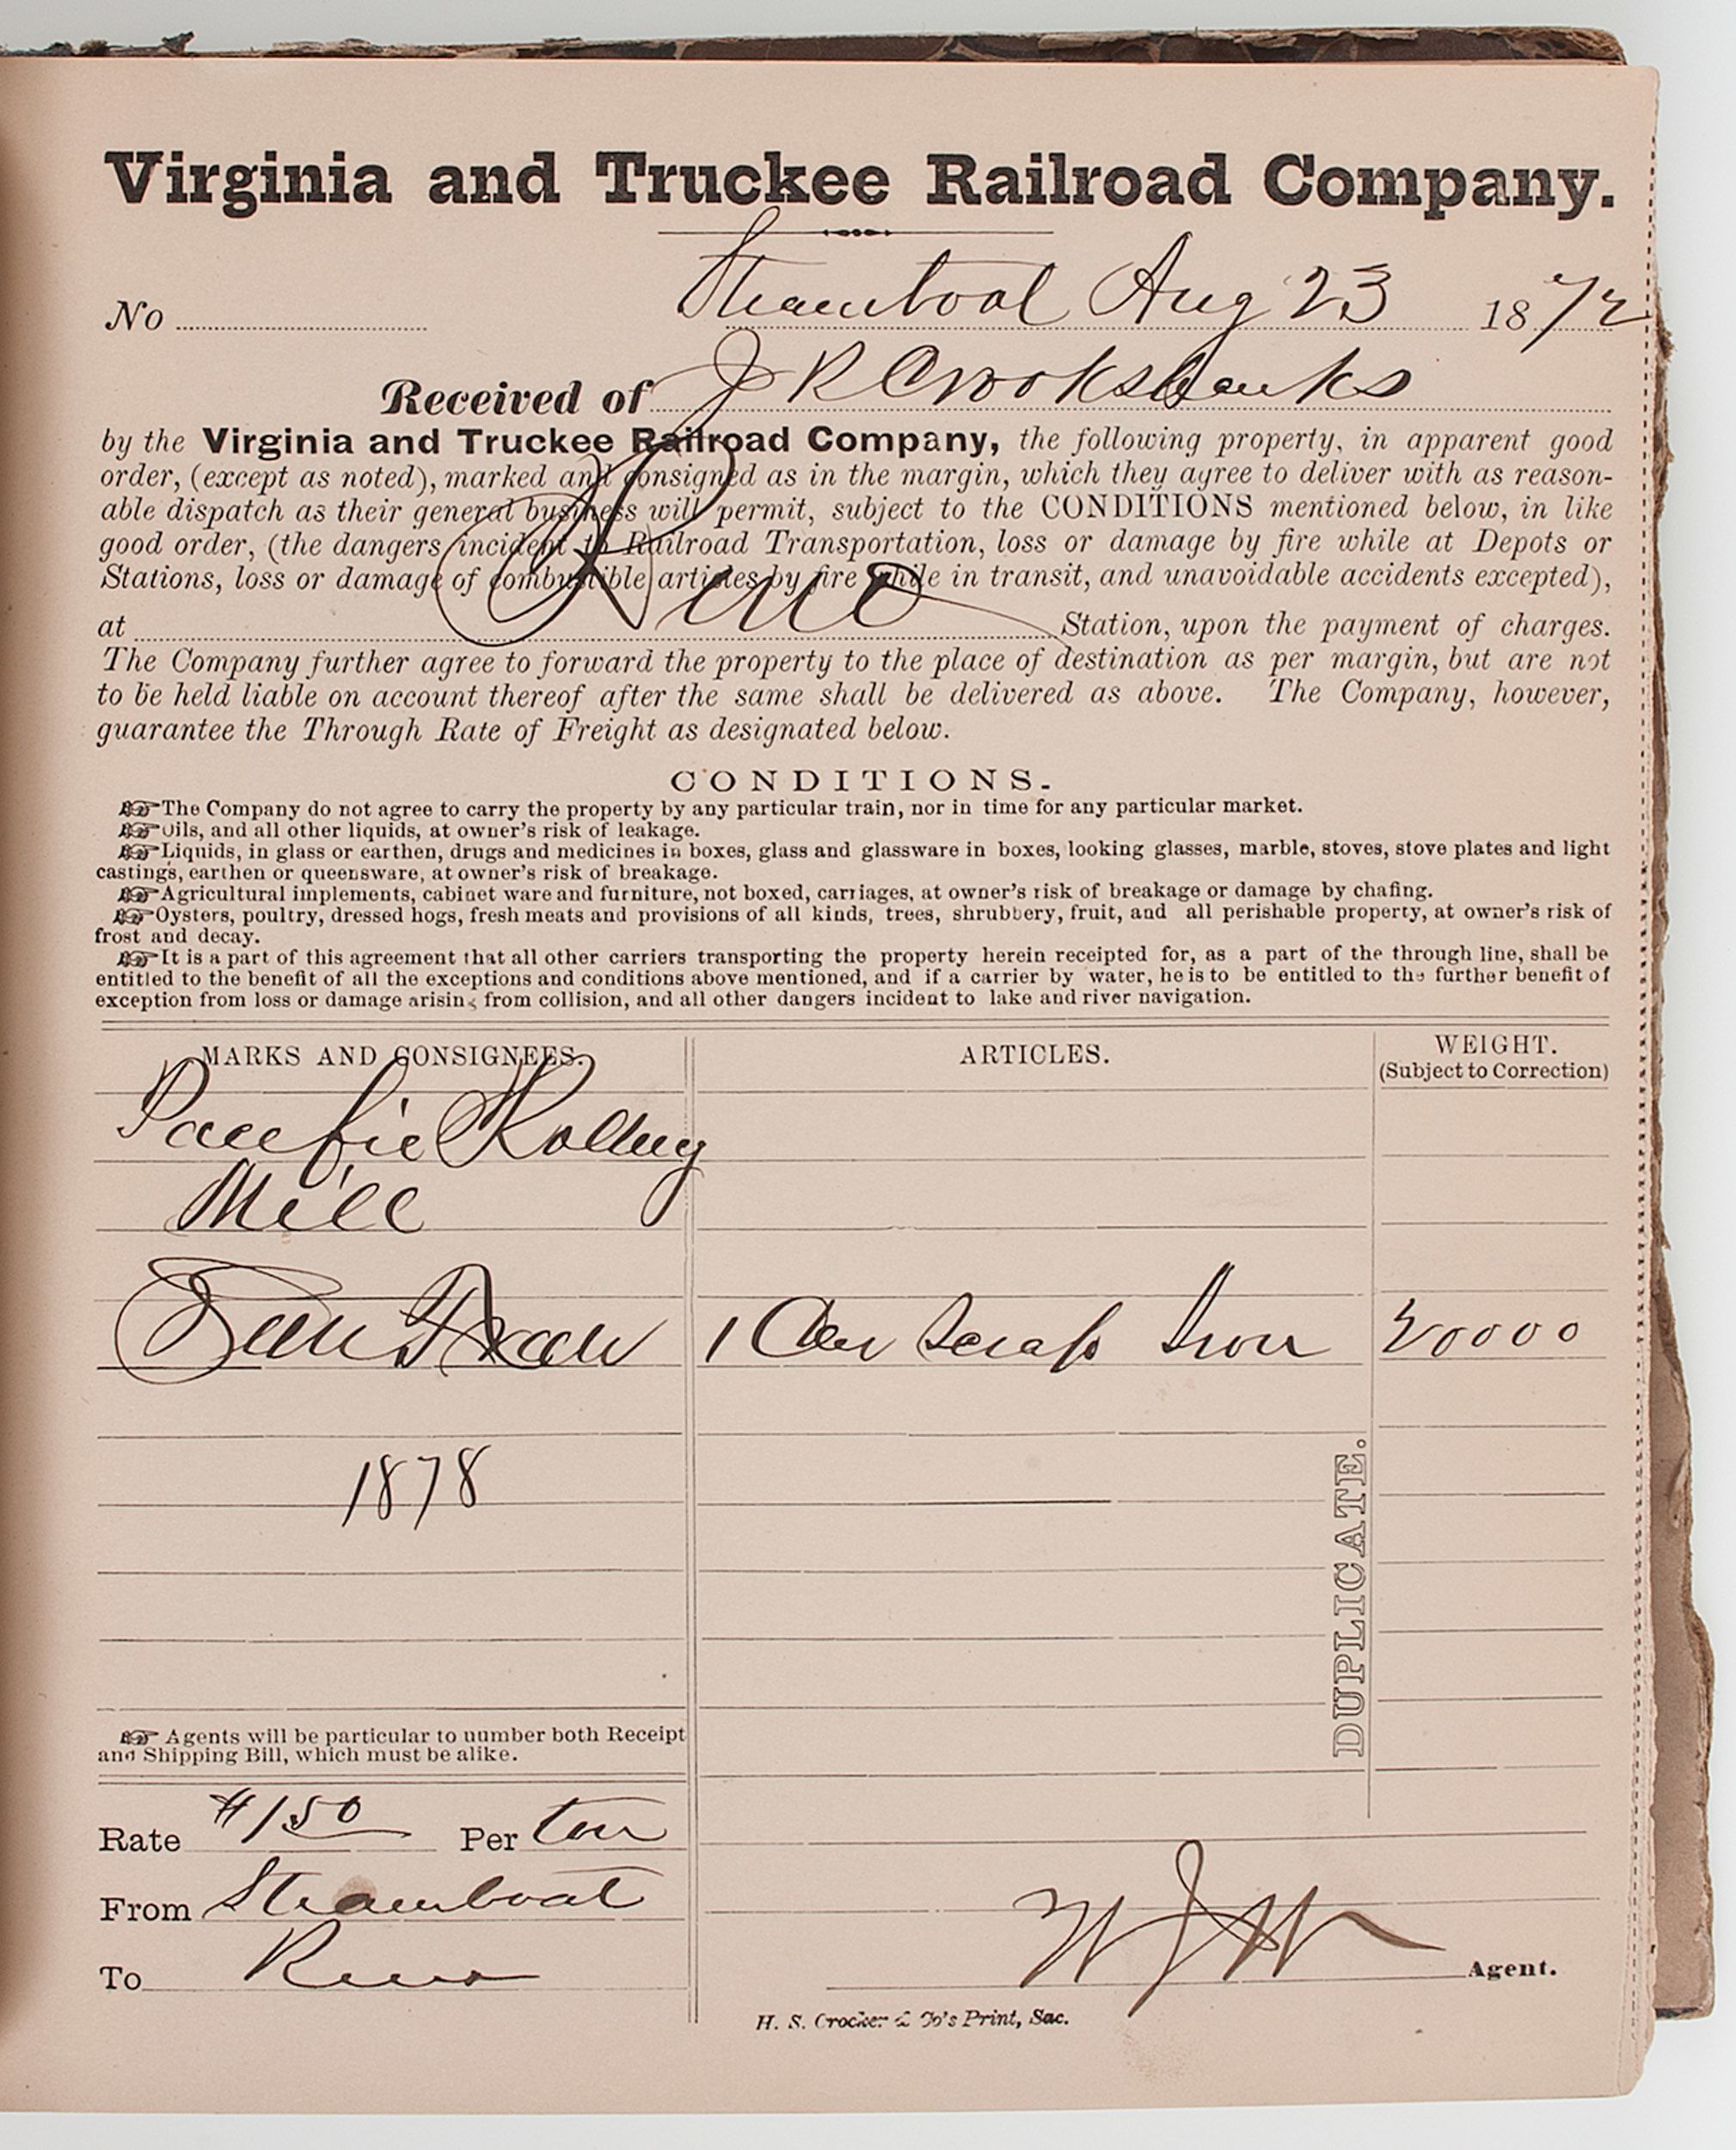 Virginia and Truckee Railroad Company.
No Steamboat Aug 23 1872
Received of J R Crooksbanks
by the Virginia and Truckee Railroad Company, the following property, in apparent good
order, (except as noted), marked and consigned as in the margin, which they agree to deliver with as reason-
able dispatch as their general business will permit, subject to the CONDITIONS mentioned below, in like
good order, (the dangers incident to Railroad Transportation, loss or damage by fire while at Depots or
Stations, loss or damage of combustible articles by fire while in transit, and unavoidable accidents excepted),
at Reno Station, upon the payment of charges.
The Company further agree to forward the property to the place of destination as per margin, but are not
to be held liable on account thereof after the same shall be delivered as above. The Company, however,
guarantee the Through Rate of Freight as designated below.
CONDITIONS.
The Company do not agree to carry the property by any particular train, nor in time for any particular market.
Oils, and all other liquids, at owner's risk of leakage.
Liquids, in glass or earthen, drugs and medicines in boxes, glass and glassware in boxes, looking glasses, marble, stoves, stove plates and light
castings, earthen or queensware, at owner's risk of breakage.
Agricultural implements, cabinet ware and furniture, not boxed, carriages, at owner's risk of breakage or damage by chafing.
Oysters, poultry, dressed hogs, fresh meats and provisions of all kinds, trees, shrubbery, fruit, and all perishable property, at owner's risk of
frost and decay.
It is a part of this agreement that all other carriers transporting the property herein receipted for, as a part of the through line, shall be
entitled to the benefit of all the exceptions and conditions above mentioned, and if a carrier by water, he is to be entitled to the further benefit of
exception from loss or damage arising from collision, and all other dangers incident to lake and river navigation.
MARKS AND CONSIGNEES. ARTICLES. WEIGHT.
(Subject to Correction)
Pacific Rolling
Mill
San Fran 1 Car Scrap Iron 20000
1878
DUPLICATE.
Agents will be particular to number both Receipt
and Shipping Bill, which must be alike.
Rate $1.50 Per ton
From Steamboat
To Reno
Agent.
H. S. Crocker & Co's Print, Sac.